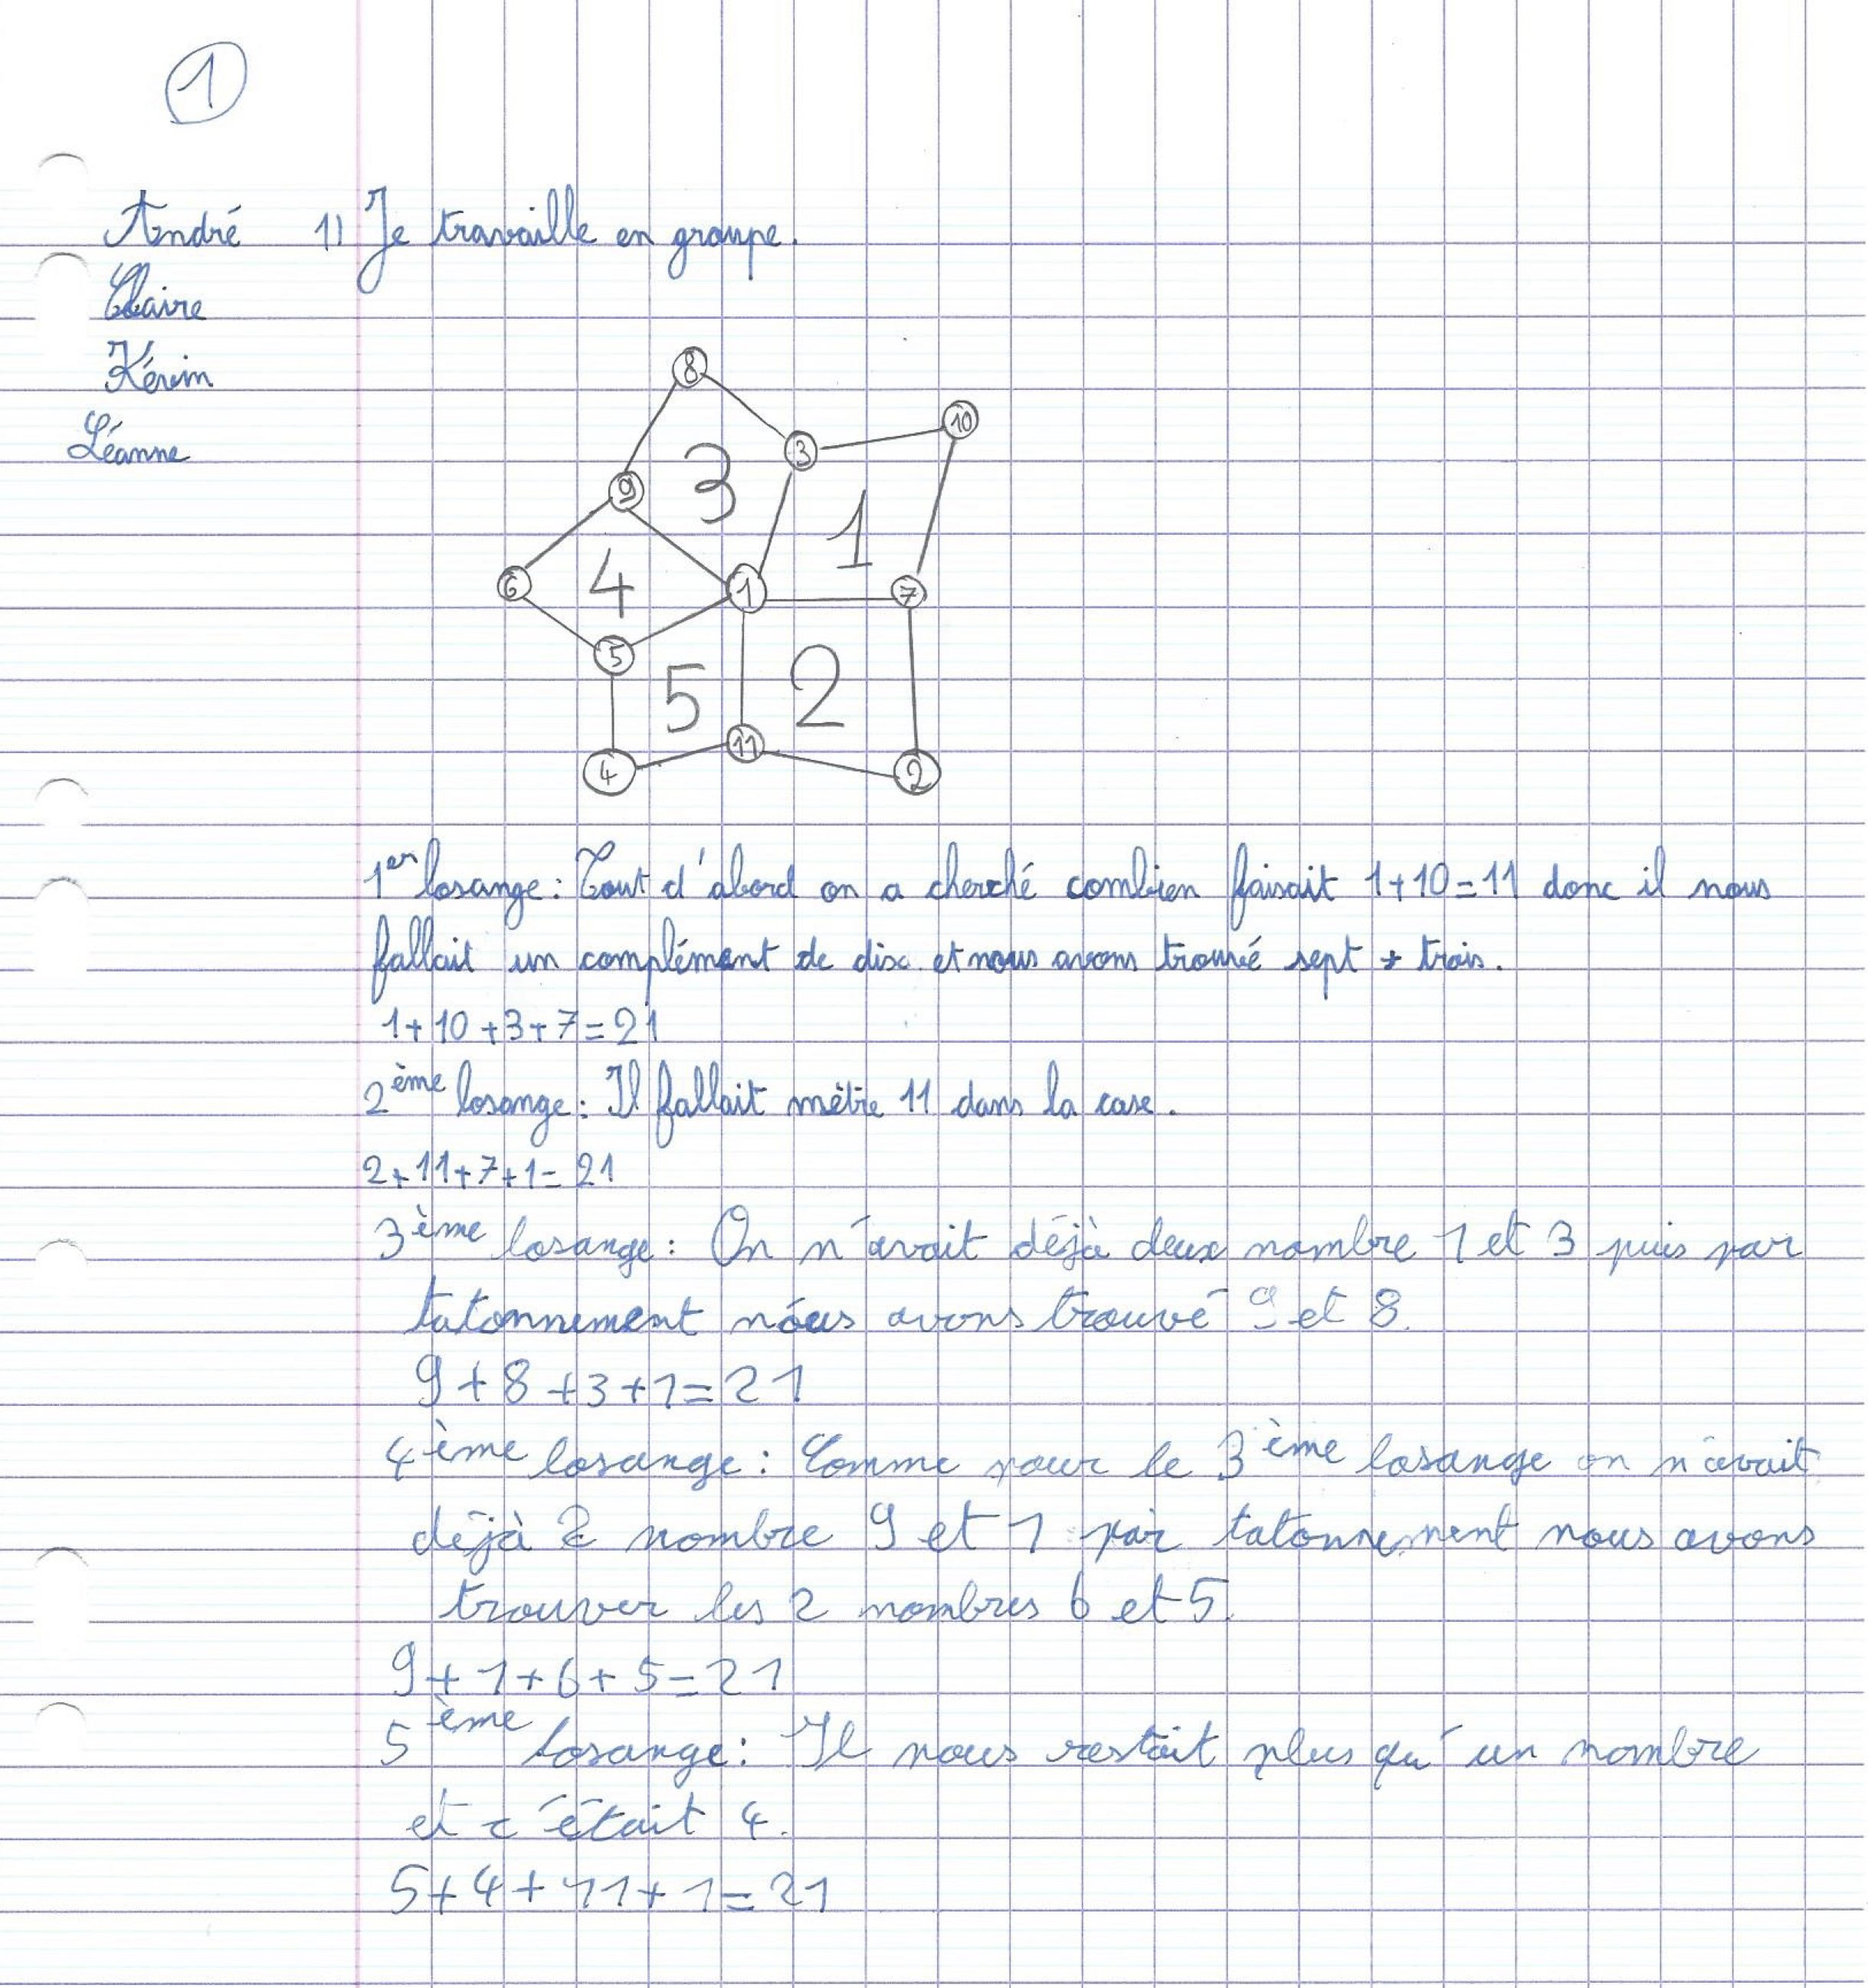 1
André 1) Je travaille en groupe.
Claire
Kévin
Léanne
8
10
3
9
3
1
6
4
1
7
5
5
2
11
4
2
1er losange : Tout d'abord on a cherché combien faisait 1+10=11 donc il nous
fallait un complément de dix et nous avons trouvé sept + trois.
1+10+3+7=21
2ème losange : Il fallait mètre 11 dans la case.
2+11+7+1=21
3ème losange : On n'avait déjà deux nombre 1 et 3 puis par
tatonnement nous avons trouvé 9 et 8.
9+8+3+1=21
4ème losange : Comme pour le 3ème losange on n'avait
déjà 2 nombre 9 et 1 par tatonnement nous avons
trouver les 2 nombres 6 et 5.
9+1+6+5=21
5ème losange : Il nous restait plus qu'un nombre
et c'était 4.
5+4+11+1=21